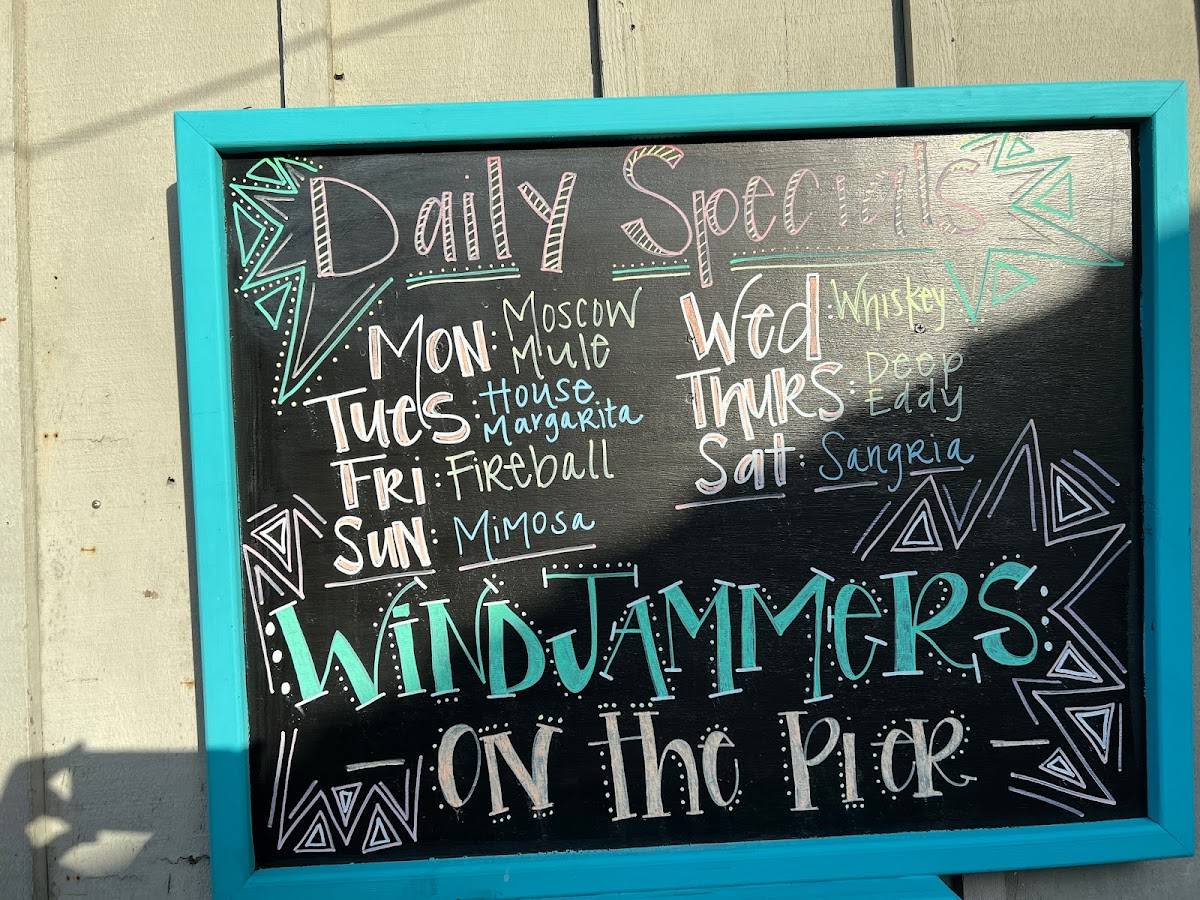 Daily Specials
Mon: Moscow
Mule
Tues: House
Margarita
Fri: Fireball
Sun: Mimosa
Wed: Whiskey
Thurs: Deep
Eddy
Sat: Sangria
WINDJAMMERS
ON The PieR